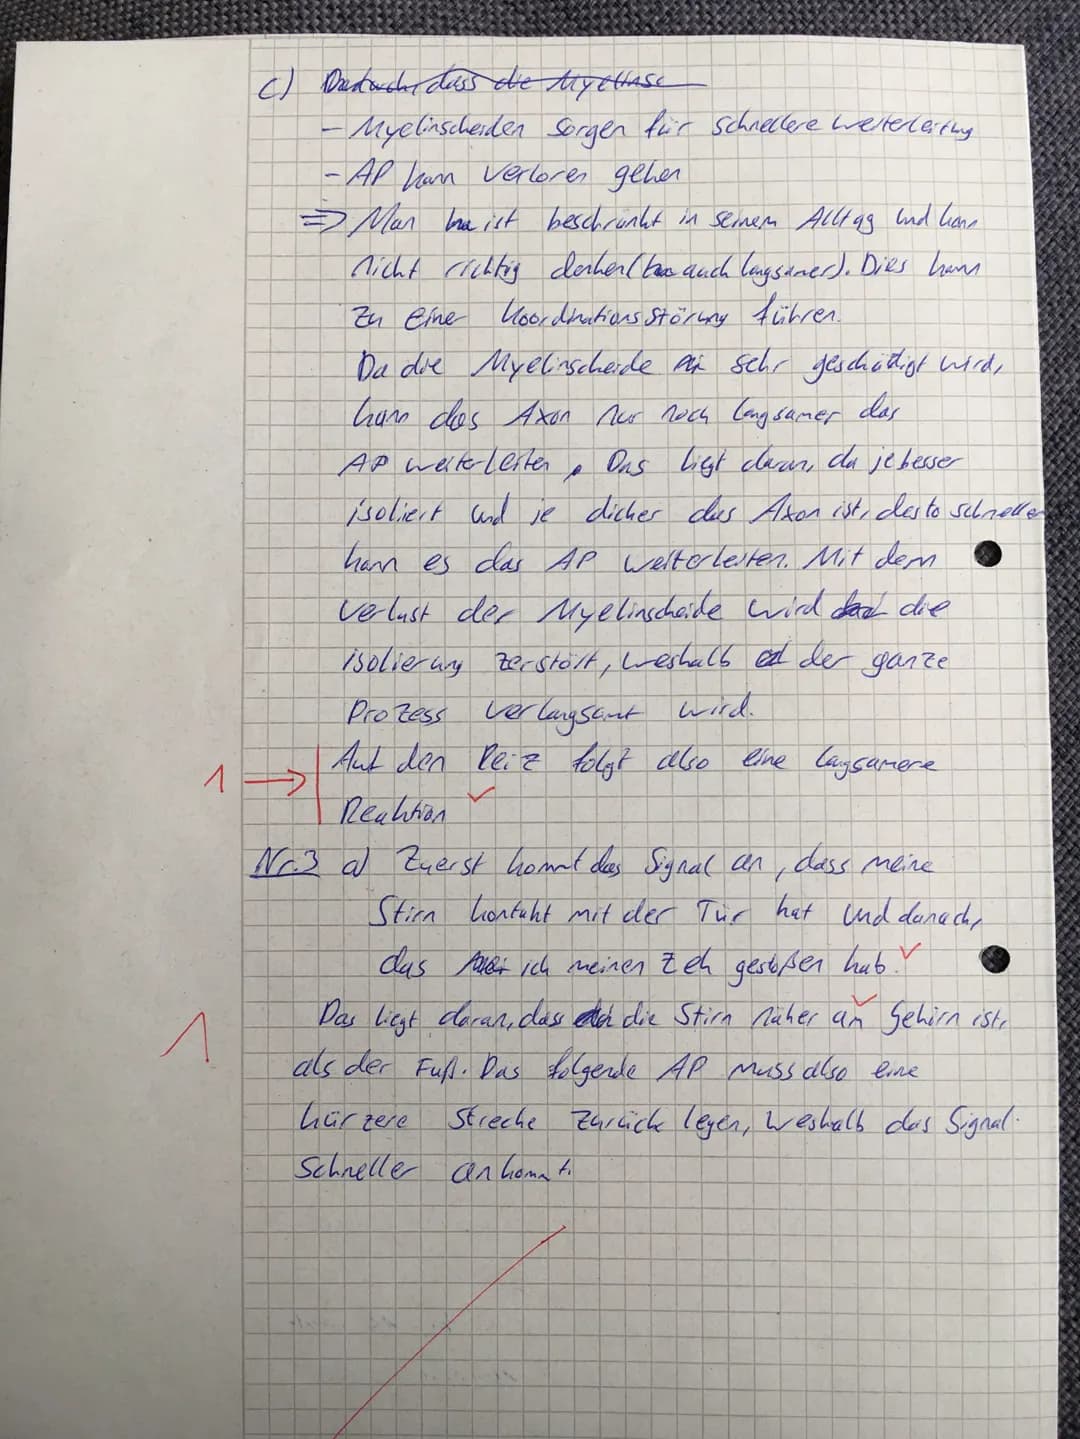 c) Dadurch, dass die Myelinsc
- Myelinscheiden sorgen für schnellere weiterleitung
- AP kann verloren gehen
⇒ Man ist beschränkt in seinem Alltag und kann
nicht richtig denken (auch langsamer). Dies kann
zu einer Koordinationsstörung führen.
Da die Myelinscheide sehr geschädigt wird,
kann das Axon nur noch langsamer das
AP weiterleiten. Das liegt daran, da je besser
isoliert und je dicker das Axon ist, desto schneller
kann es das AP weiterleiten. Mit dem
Verlust der Myelinscheide wird die
isolierung zerstört, weshalb der ganze
Prozess verlangsamt wird.
1 → Auf den Reiz folgt also eine langsamere
Reaktion ✓
Nr.3 a) Zuerst kommt das Signal an, dass meine
Stirn kontakt mit der Tür hat und danach,
das ich meinen Zeh gestoßen hab. ✓
Das liegt daran, dass die Stirn näher am Gehirn ist, ✓
1
als der Fuß. Das folgende AP muss also eine
kürzere Strecke zurück legen, weshalb das Signal
schneller ankommt.